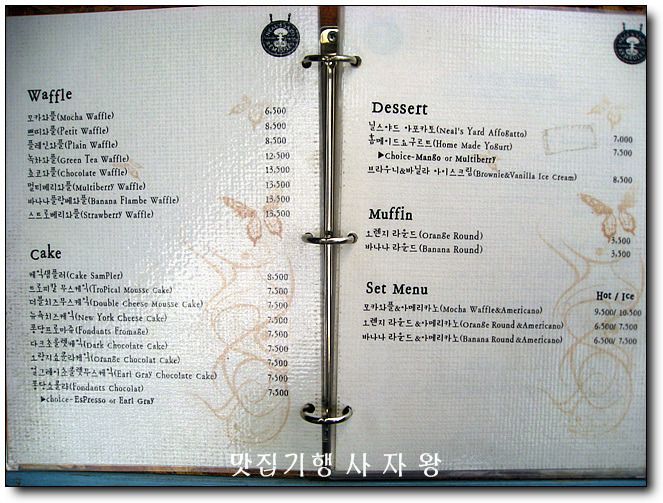 Waffle
모카와플(Mocha Waffle) 6,500
쁘띠와플(Petit Waffle) 8,500
플레인와플(Plain Waffle) 8,500
녹차와플(Green Tea Waffle) 12,500
초코와플(Chocolate Waffle) 13,500
멀티베리와플(Multiberry Waffle) 13,500
바나나플람베와플(Banana Flambe Waffle) 13,500
스트로베리와플(Strawberry Waffle) 13,500
Cake
케익샘플러(Cake Sampler) 8,500
트로피칼 무스케익(Tropical Mousse Cake) 7,500
더블치즈무스케익(Double Cheese Mousse Cake) 7,500
뉴욕치즈케익(New York Cheese Cake) 7,500
퐁당프로마쥬(Fondants Fromage) 7,500
다크초콜렛케익(Dark Chocolate Cake) 7,500
오랑지쇼콜라케익(Orange Chocolat Cake) 7,500
얼그레이초콜렛무스케익(Earl Gray Chocolate Cake) 7,500
퐁당쇼콜라(Fondants Chocolat) 7,500
▶choice-Espresso or Earl Gray
Dessert
닐스야드 아포카토(Neal's Yard Affogatto) 7,000
홈메이드요구르트(Home Made Yogurt) 7,500
▶Choice-Mango or Multiberry
브라우니&바닐라 아이스크림(Brownie&Vanilla Ice Cream) 8,500
Muffin
오렌지 라운드(Orange Round) 3,500
바나나 라운드(Banana Round) 3,500
Set Menu Hot / Ice
모카와플&아메리카노(Mocha Waffle&Americano) 9,500/ 10,500
오렌지 라운드&아메리카노(Orange Round &Americano) 6,500/ 7,500
바나나 라운드&아메리카노(Banana Round &Americano) 6,500/ 7,500
맛집기행 사 자 왕